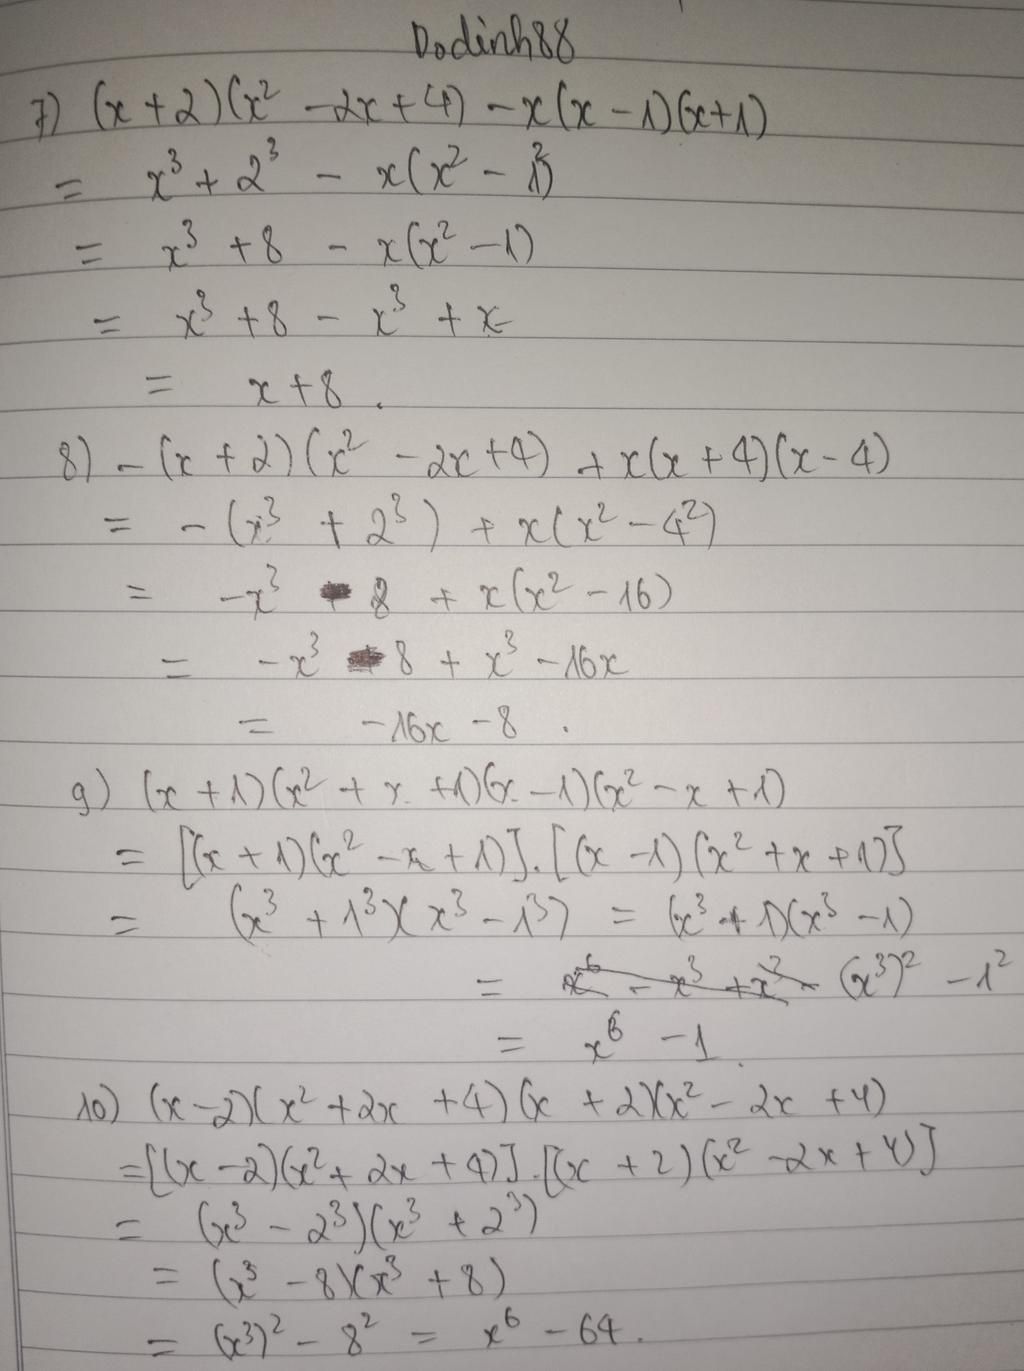 Dodinh88
7) (x + 2)(x² - 2x + 4) - x(x - 1)(x+1)
= x³ + 2³ - x(x² - 1²)
= x³ + 8 - x(x² - 1)
= x³ + 8 - x³ + x
= x + 8.
8) - (x + 2)(x² - 2x + 4) + x(x + 4)(x - 4)
= - (x³ + 2³) + x(x² - 4²)
= -x³ - 8 + x(x² - 16)
= -x³ - 8 + x³ - 16x
= -16x - 8.
9) (x + 1)(x² + x + 1)(x - 1)(x² - x + 1)
= [(x + 1)(x² - x + 1)].[(x - 1)(x² + x + 1)]
= (x³ + 1³)(x³ - 1³) = (x³ + 1)(x³ - 1)
= (x³)² - 1²
= x⁶ - 1.
10) (x - 2)(x² + 2x + 4)(x + 2)(x² - 2x + 4)
= [(x - 2)(x² + 2x + 4)].[(x + 2)(x² - 2x + 4)]
= (x³ - 2³)(x³ + 2³)
= (x³ - 8)(x³ + 8)
= (x³)² - 8² = x⁶ - 64.